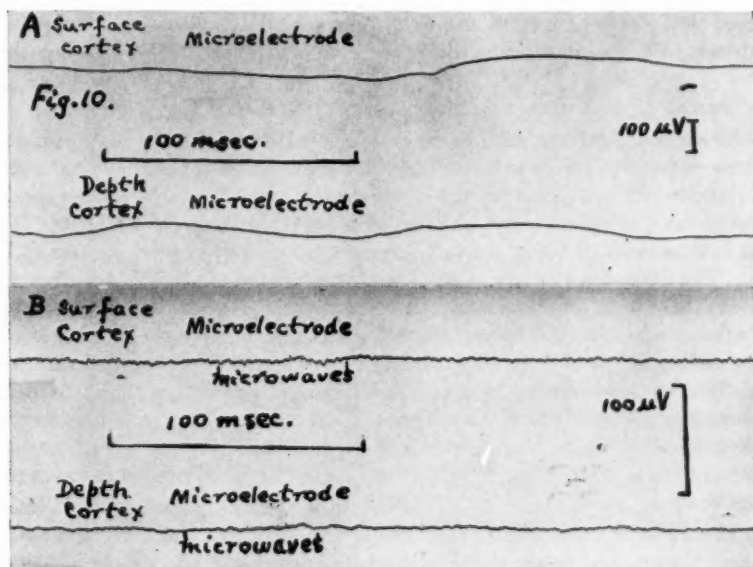 A Surface cortex Microelectrode
Fig. 10.
100 msec.
100 μV
Depth Cortex Microelectrode
B Surface Cortex Microelectrode
microwaves
100 msec.
100 μV
Depth Cortex Microelectrode
microwaves